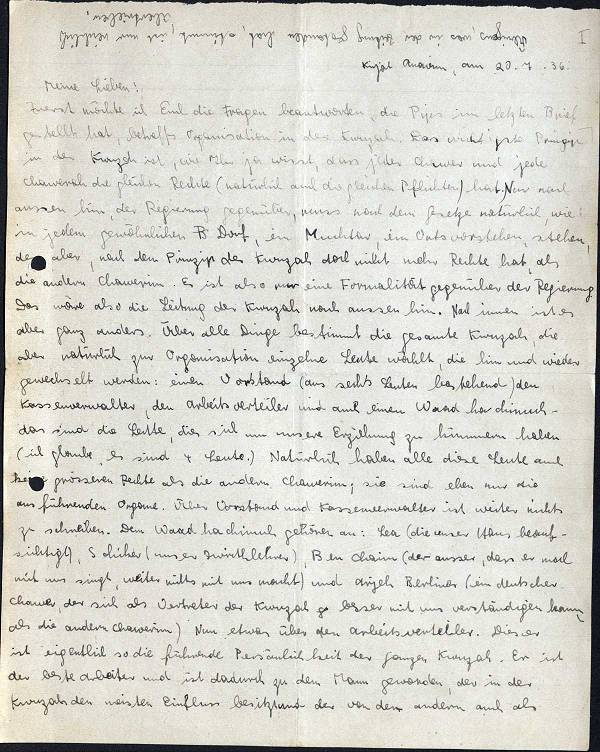 I
Kirjat Anavim, am 20.7.36.
Meine Lieben!
Zuerst möchte ich Euch die Fragen beantworten, die Pips im letzten Brief
gestellt hat, betreffs Organisation in der Kwuzah. Das wichtigste Prinzip
in der Kwuzah ist, wie Ihr ja wisst, dass jeder Chawer und jede
Chawerah die gleichen Rechte (natürlich auch die gleichen Pflichten) hat. Nur nach
aussen hin, der Regierung gegenüber, muss nach dem Gesetze natürlich, wie
in jedem gewöhnlichen Dorf, ein Muchtar, ein Ortsvorsteher, stehen,
der aber, nach dem Prinzip der Kwuzah doch nicht mehr Rechte hat, als
die andern Chawerim. Es ist also nur eine Formalität gegenüber der Regierung.
Das wäre also die Leitung der Kwuzah nach aussen hin. Nach innen ist es
aber ganz anders. Über alle Dinge bestimmt die gesamte Kwuzah, die
aber natürlich zur Organisation einzelne Leute wählt, die hin und wieder
gewechselt werden: einen Vorstand (aus sechs Leuten bestehend) den
Kassenverwalter, den Arbeitsverteiler und auch einen Waad hachinuch-
das sind die Leute, die sich um unsere Erziehung zu kümmern haben
(ich glaube, es sind 4 Leute.) Natürlich haben alle diese Leute auch
keine grösseren Rechte als die andern Chawerim; sie sind eben nur die
ausführenden Organe. Über Vorstand und Kassenverwalter ist weiter nichts
zu schreiben. Dem Waad hachinuch gehören an: Lea (die unser Haus beauf-
sichtigt), Schicher (unser Iwrithlehrer), Ben Chaim (der ausser, dass er mal
mit uns singt, weiter nichts mit uns macht) und Arjeh Berliner (ein deutscher
Chawer, der sich als Vertreter der Kwuzah besser mit uns verständigen kann,
als die andern Chawerim) Nun etwas über den Arbeitsverteiler. Dieser
ist eigentlich so die führende Persönlichkeit der ganzen Kwuzah. Er ist
der beste Arbeiter und ist dadurch zu dem Mann geworden, der in der
Kwuzah den meisten Einfluss besitzt und der von den andern auch als